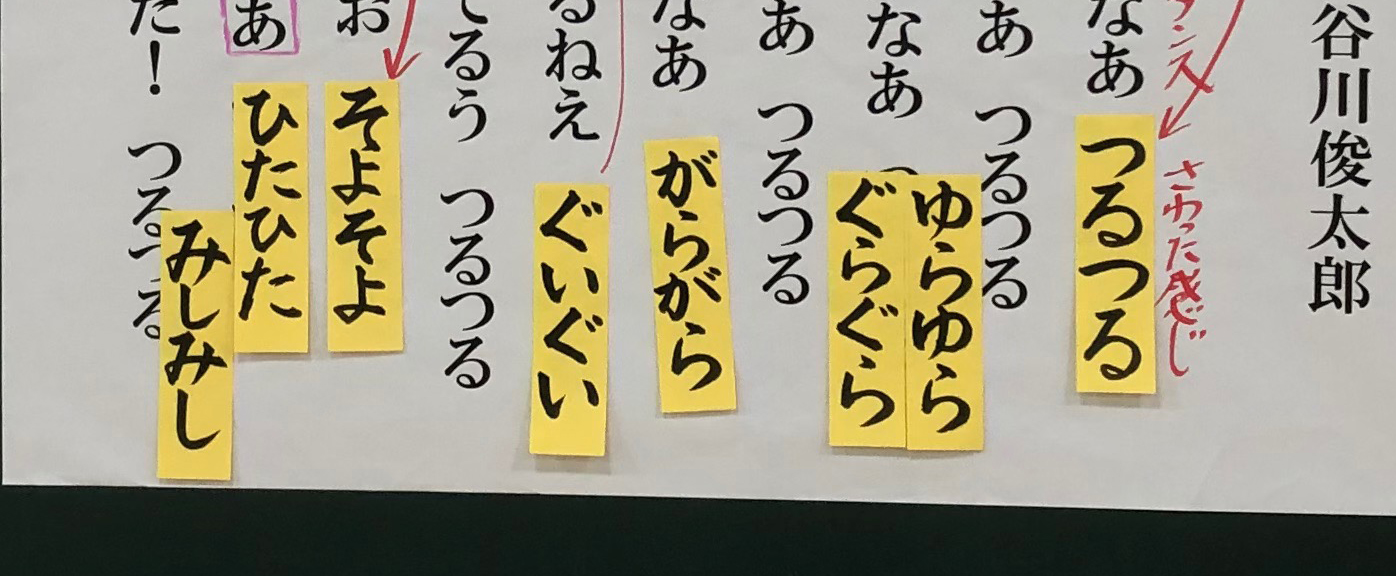 谷川俊太郎
さわった感じ
なあ つるつる
あ つるつる
なあ
ゆらゆら
ぐらぐら
あ つるつる
なあ
がらがら
るねえ
ぐいぐい
てるう つるつる
お
そよそよ
あ
ひたひた
た! つるつる
みしみし